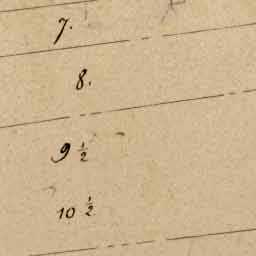 7.
8.
9 ½
10 ½